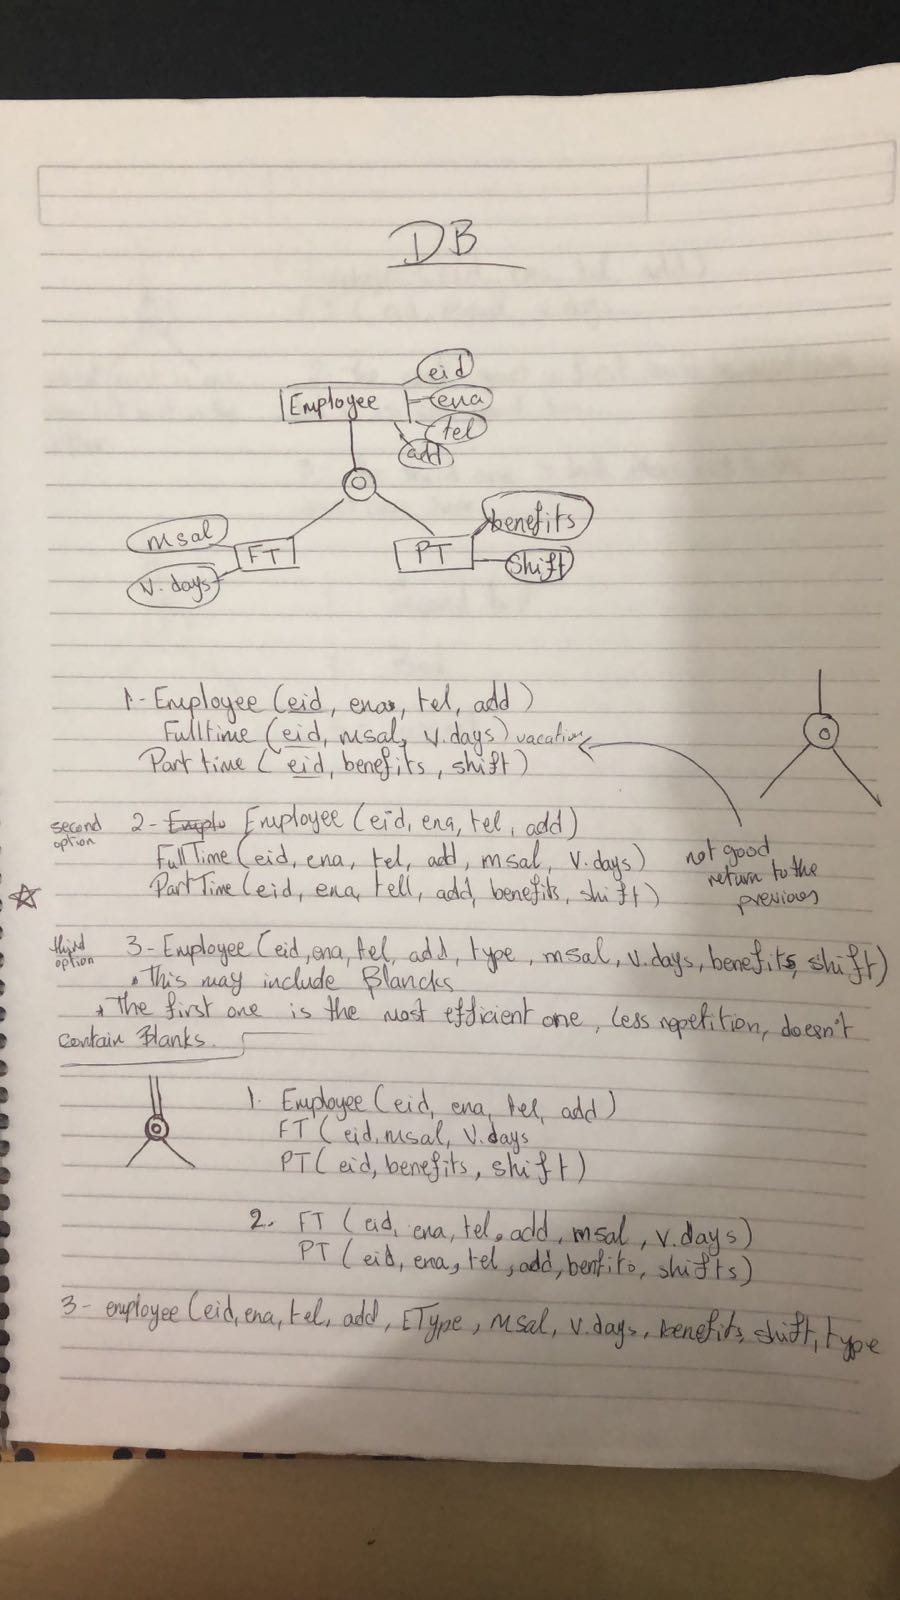 DB
eid
Employee
ena
tel
add
O
benefits
msal
FT
PT
shift
V.days
1- Employee (eid, ena, tel, add)
Fulltime (eid, msal, V.days) vacation
Part time (eid, benefits, shift)
second option
2- Emplo Employee (eid, ena, tel, add)
FullTime (eid, ena, tel, add, msal, V.days)
PartTime (eid, ena, tell, add, benefits, shift)
not good
return to the
previous
third option
3- Employee (eid, ena, tel, add, type, msal, V.days, benefits, shift)
• This may include Blancks
• The first one is the most efficient one, less repetition, doesn't
contain Blanks.
1. Employee (eid, ena, tel, add)
FT (eid, msal, V.days
PT (eid, benefits, shift)
2. FT (eid, ena, tel, add, msal, V.days)
PT (eid, ena, tel, add, benfits, shifts)
3- employee (eid, ena, tel, add, EType, msal, V.days, benefits, shift, type